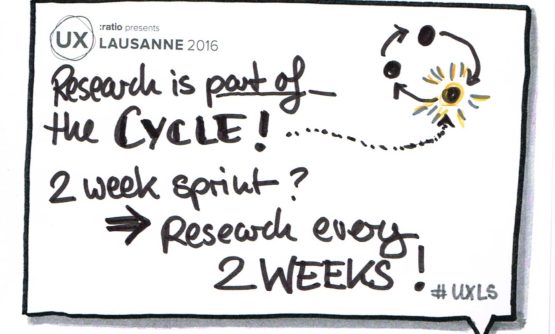 :ratio presents
UX LAUSANNE 2016
Research is part of
the CYCLE!
2 week sprint?
⇒ Research every
2 WEEKS!
#UXLS